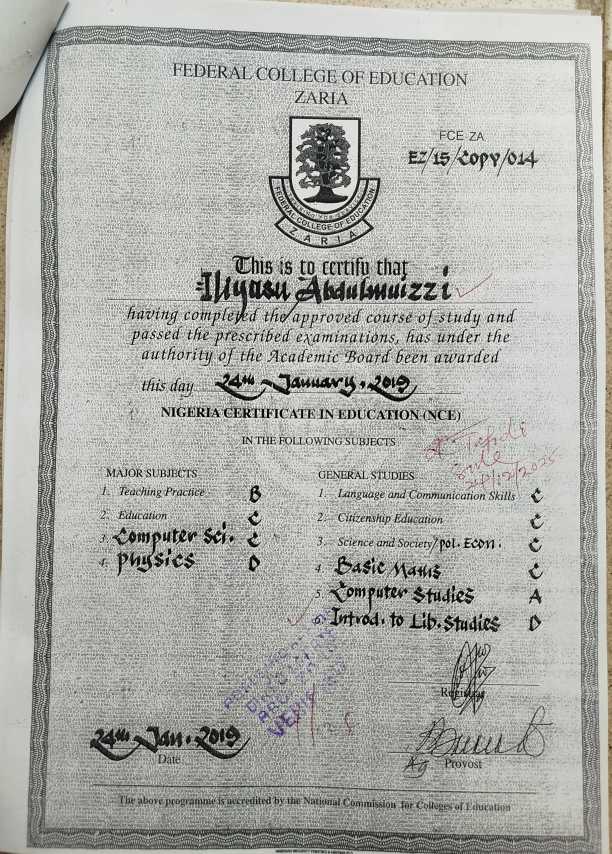 FEDERAL COLLEGE OF EDUCATION
ZARIA
FCE ZA
EZ/15/COPY/014
FEDERAL COLLEGE OF EDUCATION
ZARIA
This is to certify that
Iliyasu Abdulmuizzi
having completed the approved course of study and
passed the prescribed examinations, has under the
authority of the Academic Board been awarded
this day 24th January, 2019
NIGERIA CERTIFICATE IN EDUCATION (NCE)
IN THE FOLLOWING SUBJECTS
MAJOR SUBJECTS
1. Teaching Practice B
2. Education C
3. Computer Sci. C
4. Physics D
GENERAL STUDIES
1. Language and Communication Skills C
2. Citizenship Education C
3. Science and Society/pol. Econ. C
4. Basic Maths C
5. Computer Studies A
6. Introd. to Lib. Studies D
24/12/2025
Registrar
24th Jan. 2019
Date
Ag Provost
The above programme is accredited by the National Commission for Colleges of Education